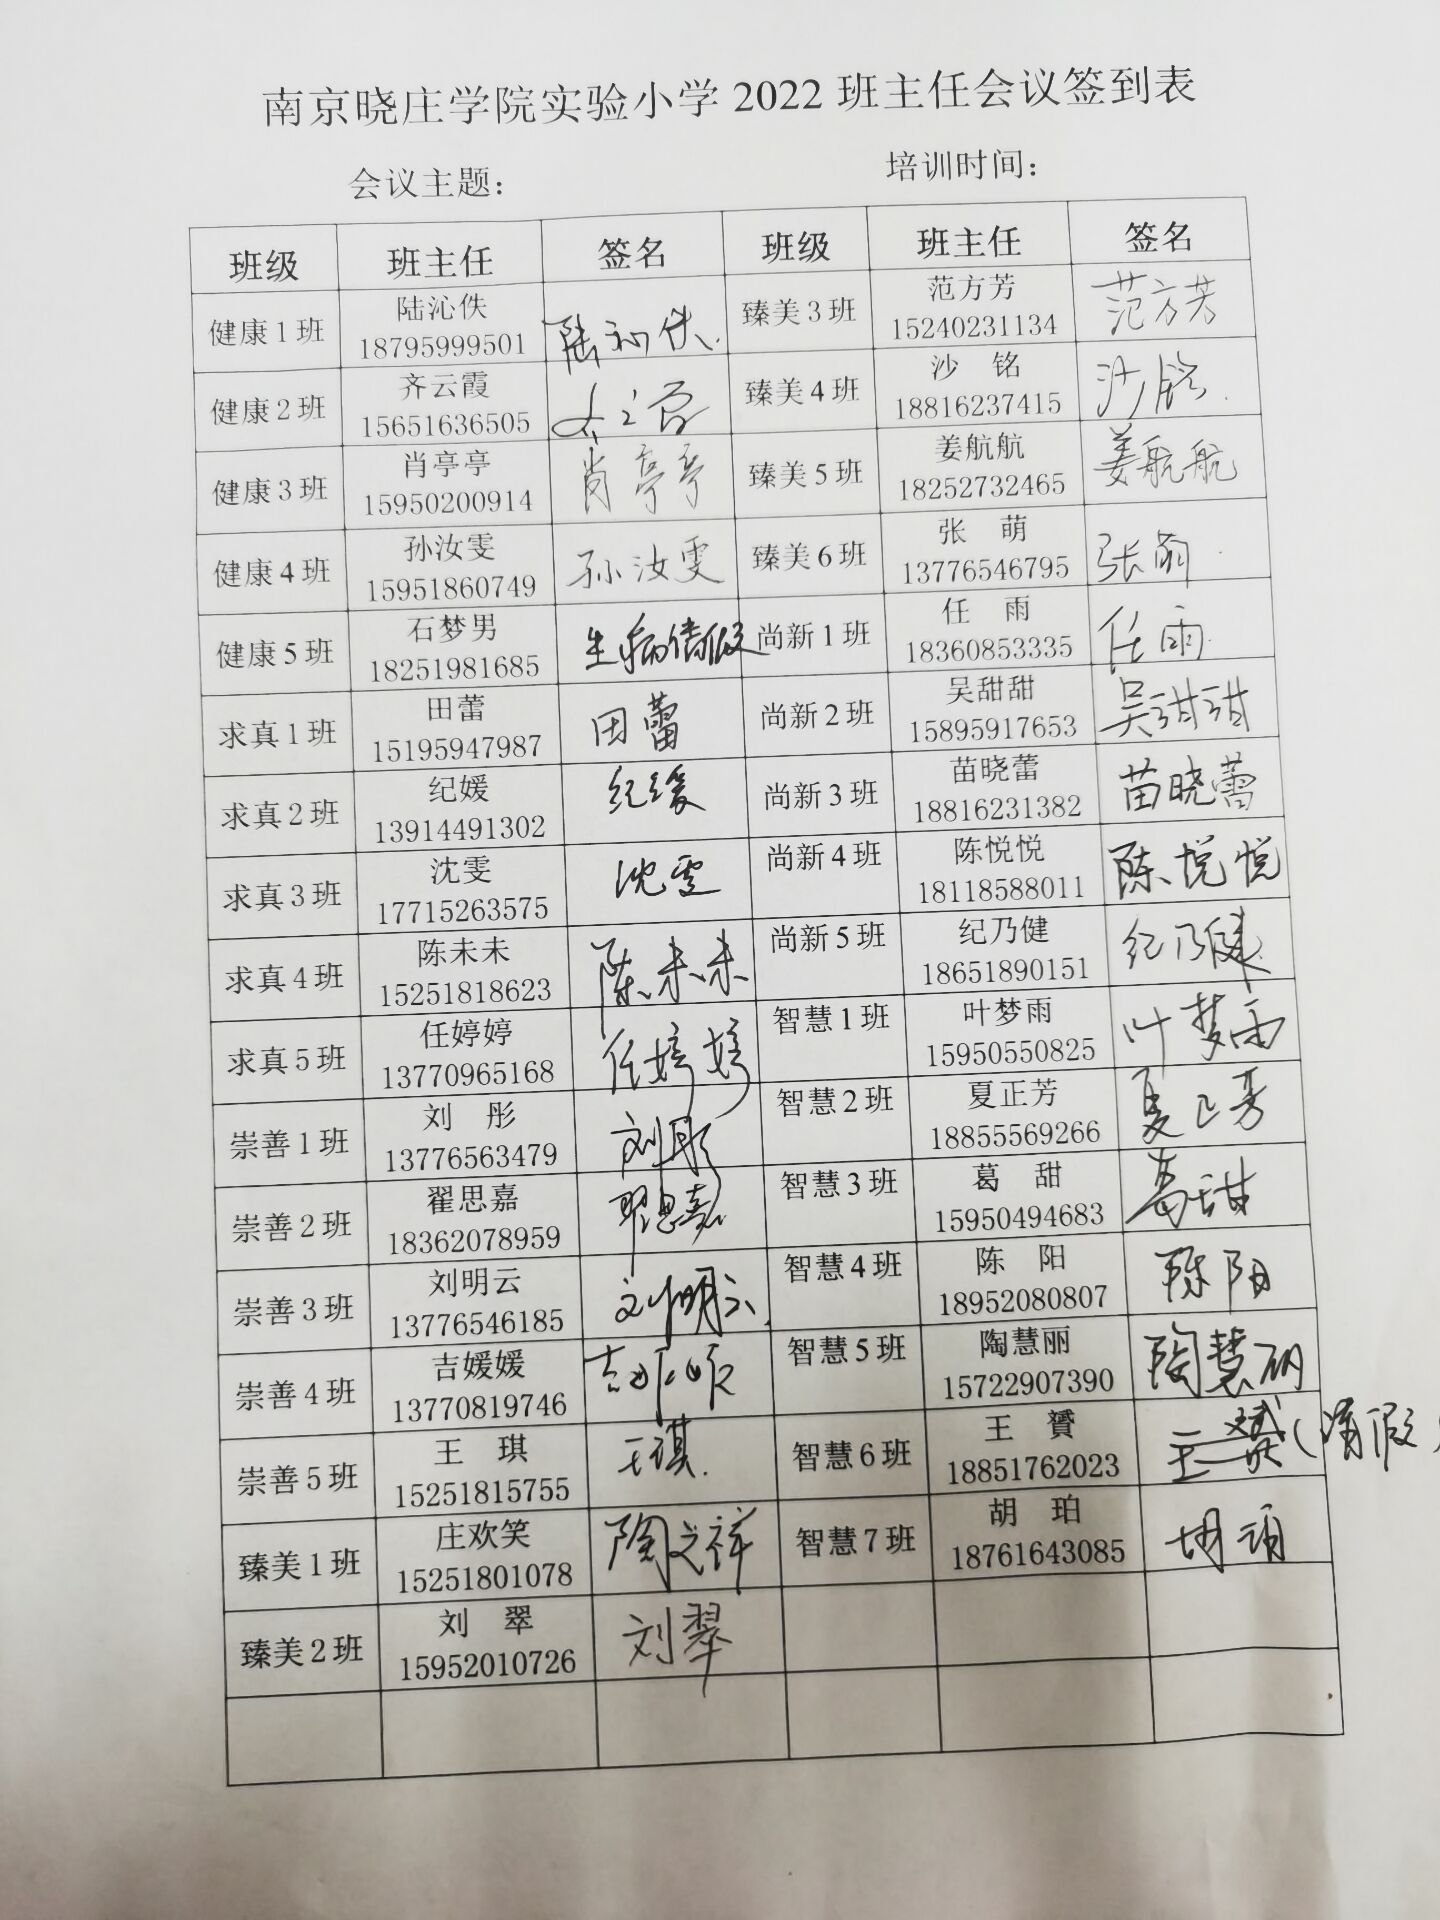 南京晓庄学院实验小学 2022 班主任会议签到表
会议主题： 培训时间：
班级 班主任 签名 班级 班主任 签名
健康1班 陆沁佚 18795999501 陆沁佚 臻美3班 范方芳 15240231134 范方芳
健康2班 齐云霞 15651636505 臻美4班 沙 铭 18816237415 沙铭
健康3班 肖亭亭 15950200914 肖亭亭 臻美5班 姜航航 18252732465 姜航航
健康4班 孙汝雯 15951860749 孙汝雯 臻美6班 张 萌 13776546795 张萌
健康5班 石梦男 18251981685 生病请假 尚新1班 任 雨 18360853335 任雨
求真1班 田蕾 15195947987 田蕾 尚新2班 吴甜甜 15895917653 吴甜甜
求真2班 纪媛 13914491302 纪媛 尚新3班 苗晓蕾 18816231382 苗晓蕾
求真3班 沈雯 17715263575 沈雯 尚新4班 陈悦悦 18118588011 陈悦悦
求真4班 陈未未 15251818623 陈未未 尚新5班 纪乃健 18651890151 纪乃健
求真5班 任婷婷 13770965168 任婷婷 智慧1班 叶梦雨 15950550825 叶梦雨
崇善1班 刘 彤 13776563479 刘彤 智慧2班 夏正芳 18855569266 夏正芳
崇善2班 翟思嘉 18362078959 翟思嘉 智慧3班 葛 甜 15950494683 葛甜
崇善3班 刘明云 13776546185 刘明云 智慧4班 陈 阳 18952080807 陈阳
崇善4班 吉媛媛 13770819746 智慧5班 陶慧丽 15722907390 陶慧丽
崇善5班 王 琪 15251815755 王琪 智慧6班 王 赟 18851762023 王赟（请假）
臻美1班 庄欢笑 15251801078 智慧7班 胡 珀 18761643085 胡珀
臻美2班 刘 翠 15952010726 刘翠